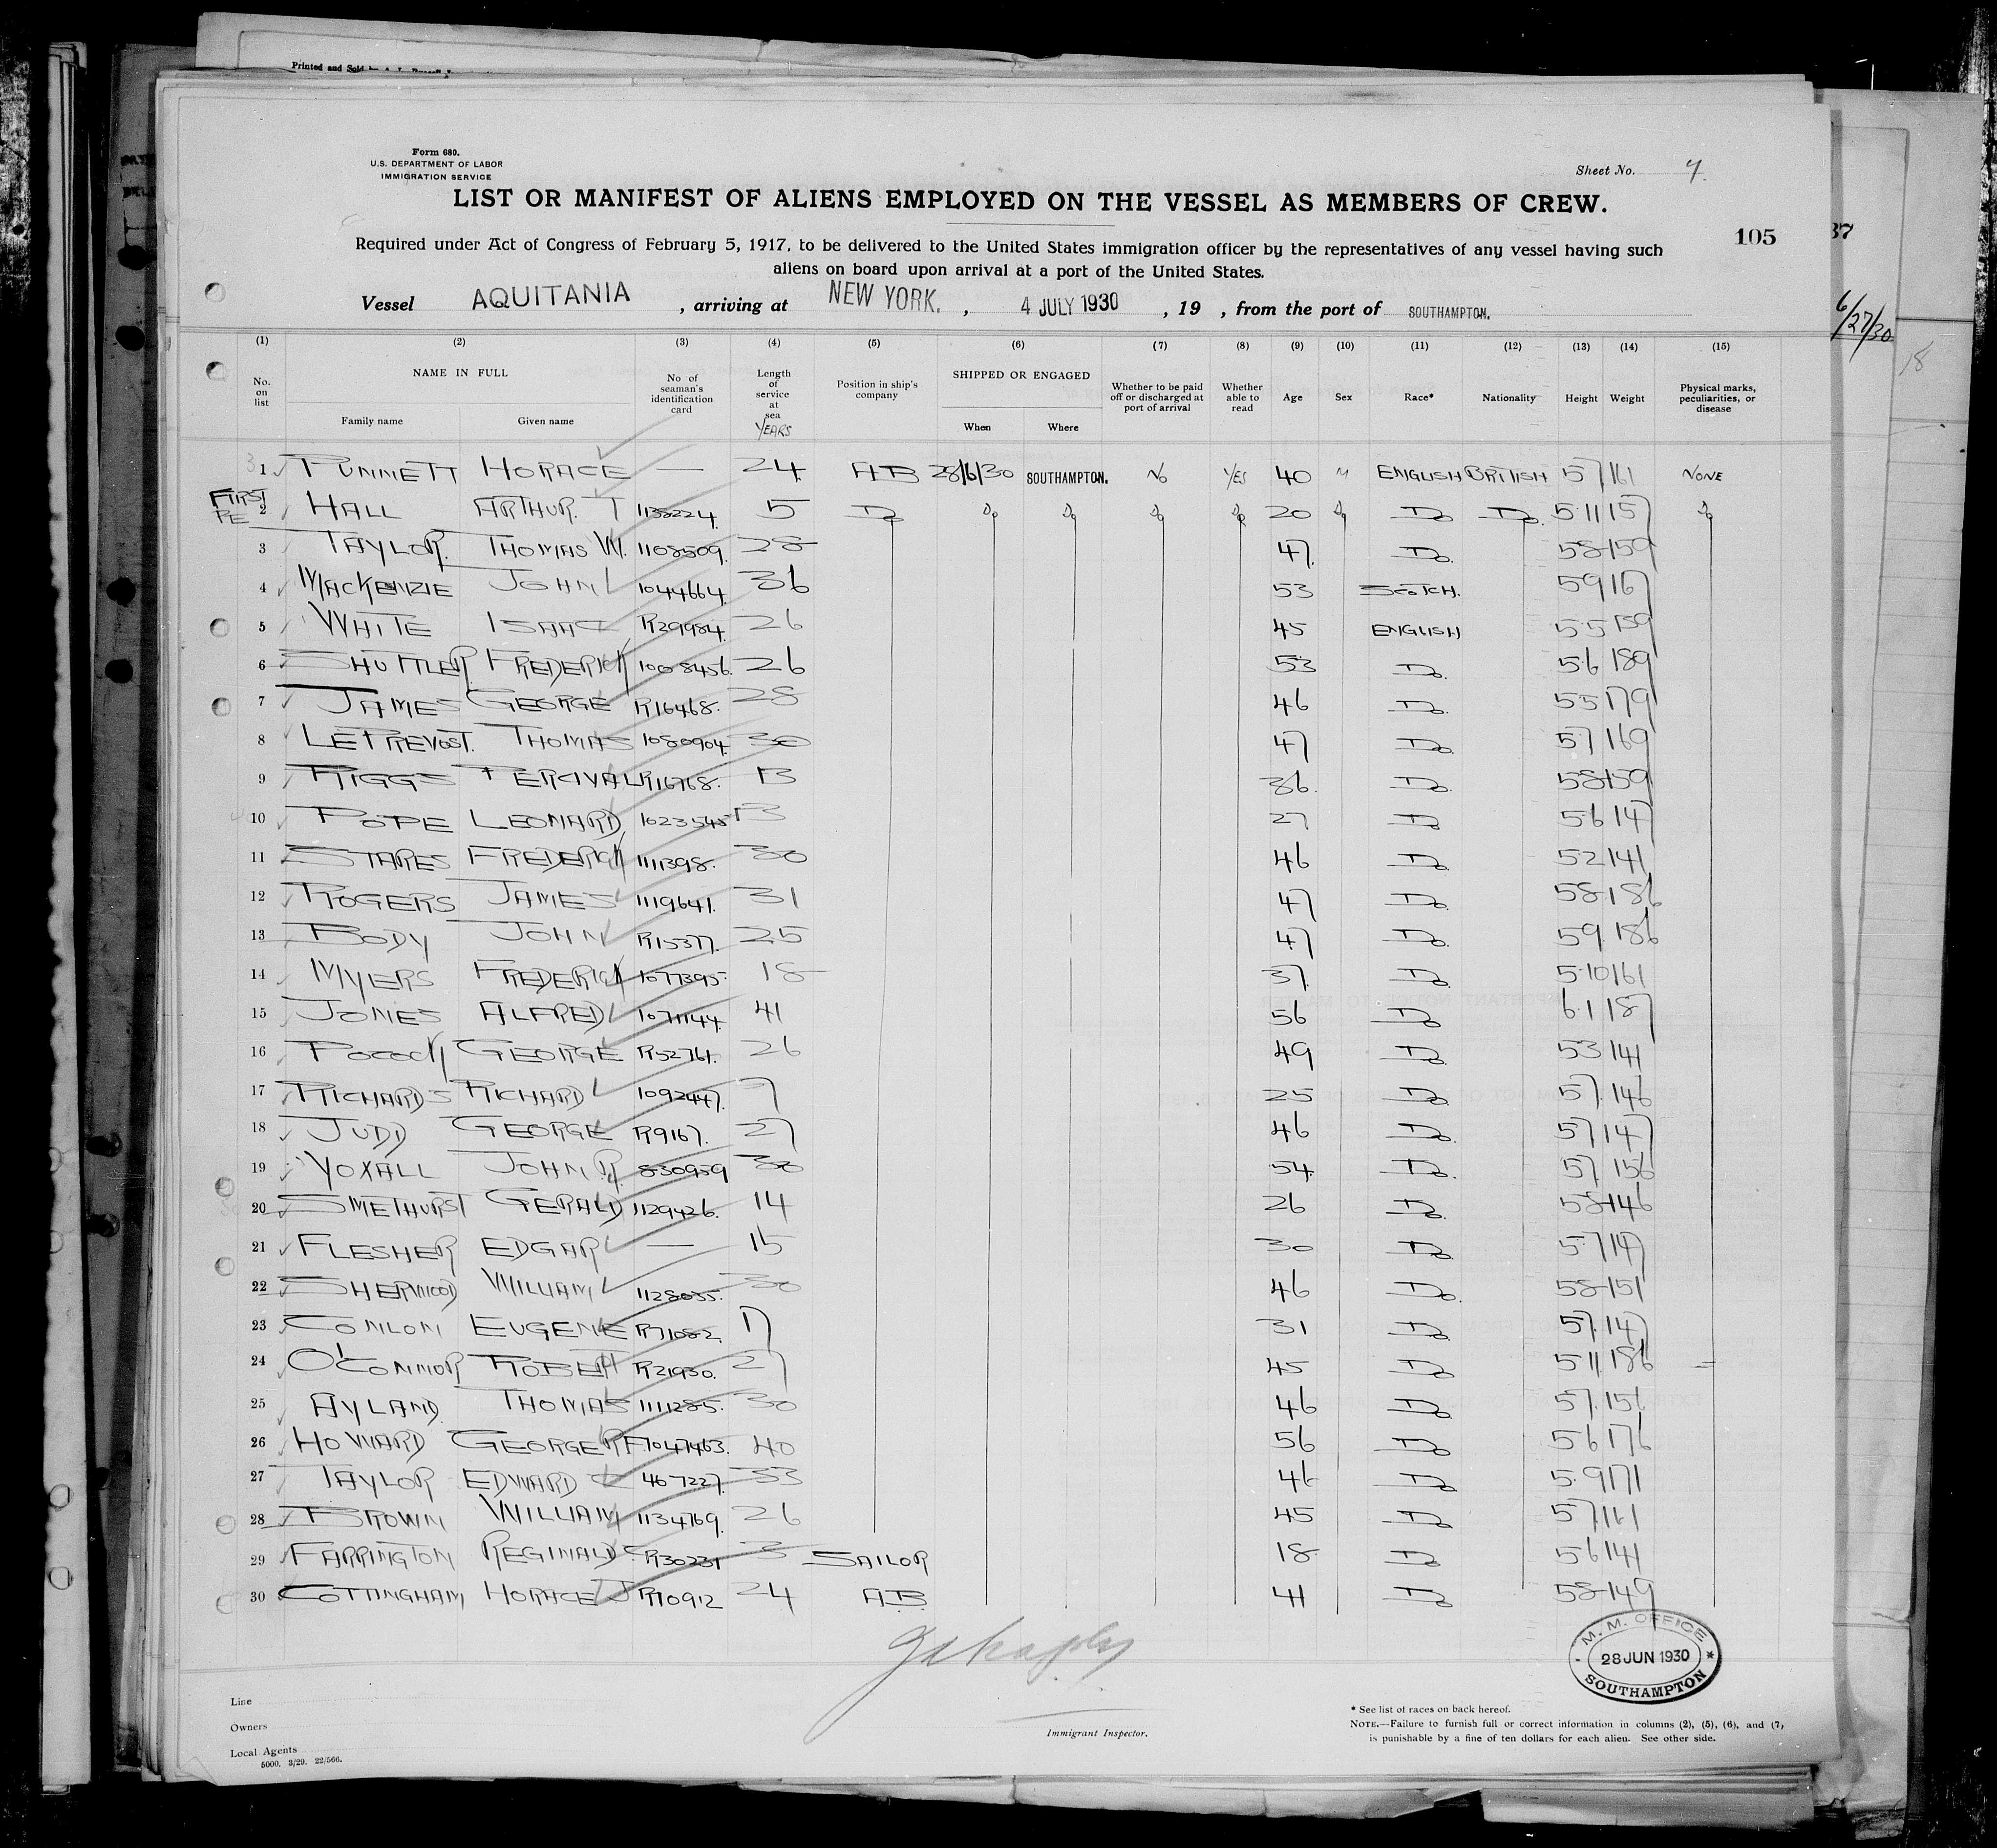 Printed and Sold by
Form 680.
U.S. DEPARTMENT OF LABOR
IMMIGRATION SERVICE
Sheet No. 7.
LIST OR MANIFEST OF ALIENS EMPLOYED ON THE VESSEL AS MEMBERS OF CREW.
105
37
Required under Act of Congress of February 5, 1917, to be delivered to the United States immigration officer by the representatives of any vessel having such
aliens on board upon arrival at a port of the United States.
Vessel AQUITANIA , arriving at NEW YORK. , 4 JULY 1930 , 19 , from the port of SOUTHAMPTON.
6/27/30
18
(1) (2) (3) (4) (5) (6) (7) (8) (9) (10) (11) (12) (13) (14) (15)
No. on list NAME IN FULL Family name Given name No of seaman's identification card Length of service at sea YEARS Position in ship's company SHIPPED OR ENGAGED When Where Whether to be paid off or discharged at port of arrival Whether able to read Age Sex Race* Nationality Height Weight Physical marks, peculiarities, or disease
1 PUNNETT HORACE — 24 AB 28/6/30 SOUTHAMPTON. No YES 40 M ENGLISH BRITISH 5 7 161 NONE
FIRST
2 HALL ARTHUR. T 1138224. 5 Do Do Do Do Do 20 Do Do Do. 5 11 157 Do
3 TAYLOR. THOMAS W. 1108509. 28 47. Do. 5 8 159
4 MACKENZIE JOHN 1044664. 36 53 SCOTCH. 5 9 167
5 WHITE ISAAC R29984. 26 45 ENGLISH 5 5 159
6 SHUTTLER FREDERICK 1008456. 26 53 Do. 5 6 189
7 JAMES GEORGE R16468. 28 46 Do. 5 5 179
8 LE PREVOST. THOMAS 1080904. 30 47 Do. 5 7 169
9 RIGGS PERCIVAL R16768. 13 36. Do. 5 8 159
10 POPE LEONARD 1023545 13 27 Do 5 6 147
11 STARES FREDERICK 1111398. 30 46 Do. 5 2 141
12 ROGERS JAMES 1119641. 31 47 Do. 5 8 186
13 BODY JOHN R15377. 25 47 Do. 5 9 186
14 MYERS FREDERICK 1077395. 18 37. Do. 5 10 161
15 JONES ALFRED 1071144. 41 56 Do 6 1 187
16 POCOCK GEORGE R52761. 26 49 Do. 5 3 141
17 RICHARDS RICHARD 1092447. 7 25 Do. 5 7 146
18 JUDD GEORGE R9167. 27 46 Do. 5 7 147
19 YOXALL JOHN R 830959 30 54. Do. 5 7 156
20 SMETHURST GERALD 1129426. 14 26 Do. 5 8 146
21 FLESHER EDGAR — 15 30 Do. 5 7 147
22 SHERWOOD WILLIAM 1128035. 30 46 Do. 5 8 151
23 CONLON EUGENE R71082. 17 31 Do. 5 7 147
24 O'CONNOR ROBERT R21930. 27 45 Do. 5 11 186 —
25 AYLAND THOMAS 1111285. 30 46 Do 5 7 151
26 HOWARD GEORGE R F 1047463. 40 56 Do 5 6 176
27 TAYLOR EDWARD C 467227. 33 46 Do 5 9 171
28 BROWN WILLIAM 1134769. 26 45 Do 5 7 161
29 FARRINGTON REGINALD C R30231 3 SAILOR 18 Do 5 6 141
30 COTTINGHAM HORACE J R10912 24 A.B. 41 Do 5 8 149
M. M. OFFICE
28 JUN 1930
SOUTHAMPTON
Line
Owners
Local Agents
5000. 3/29. 22/566.
Immigrant Inspector.
* See list of races on back hereof.
NOTE.—Failure to furnish full or correct information in columns (2), (5), (6), and (7),
is punishable by a fine of ten dollars for each alien. See other side.